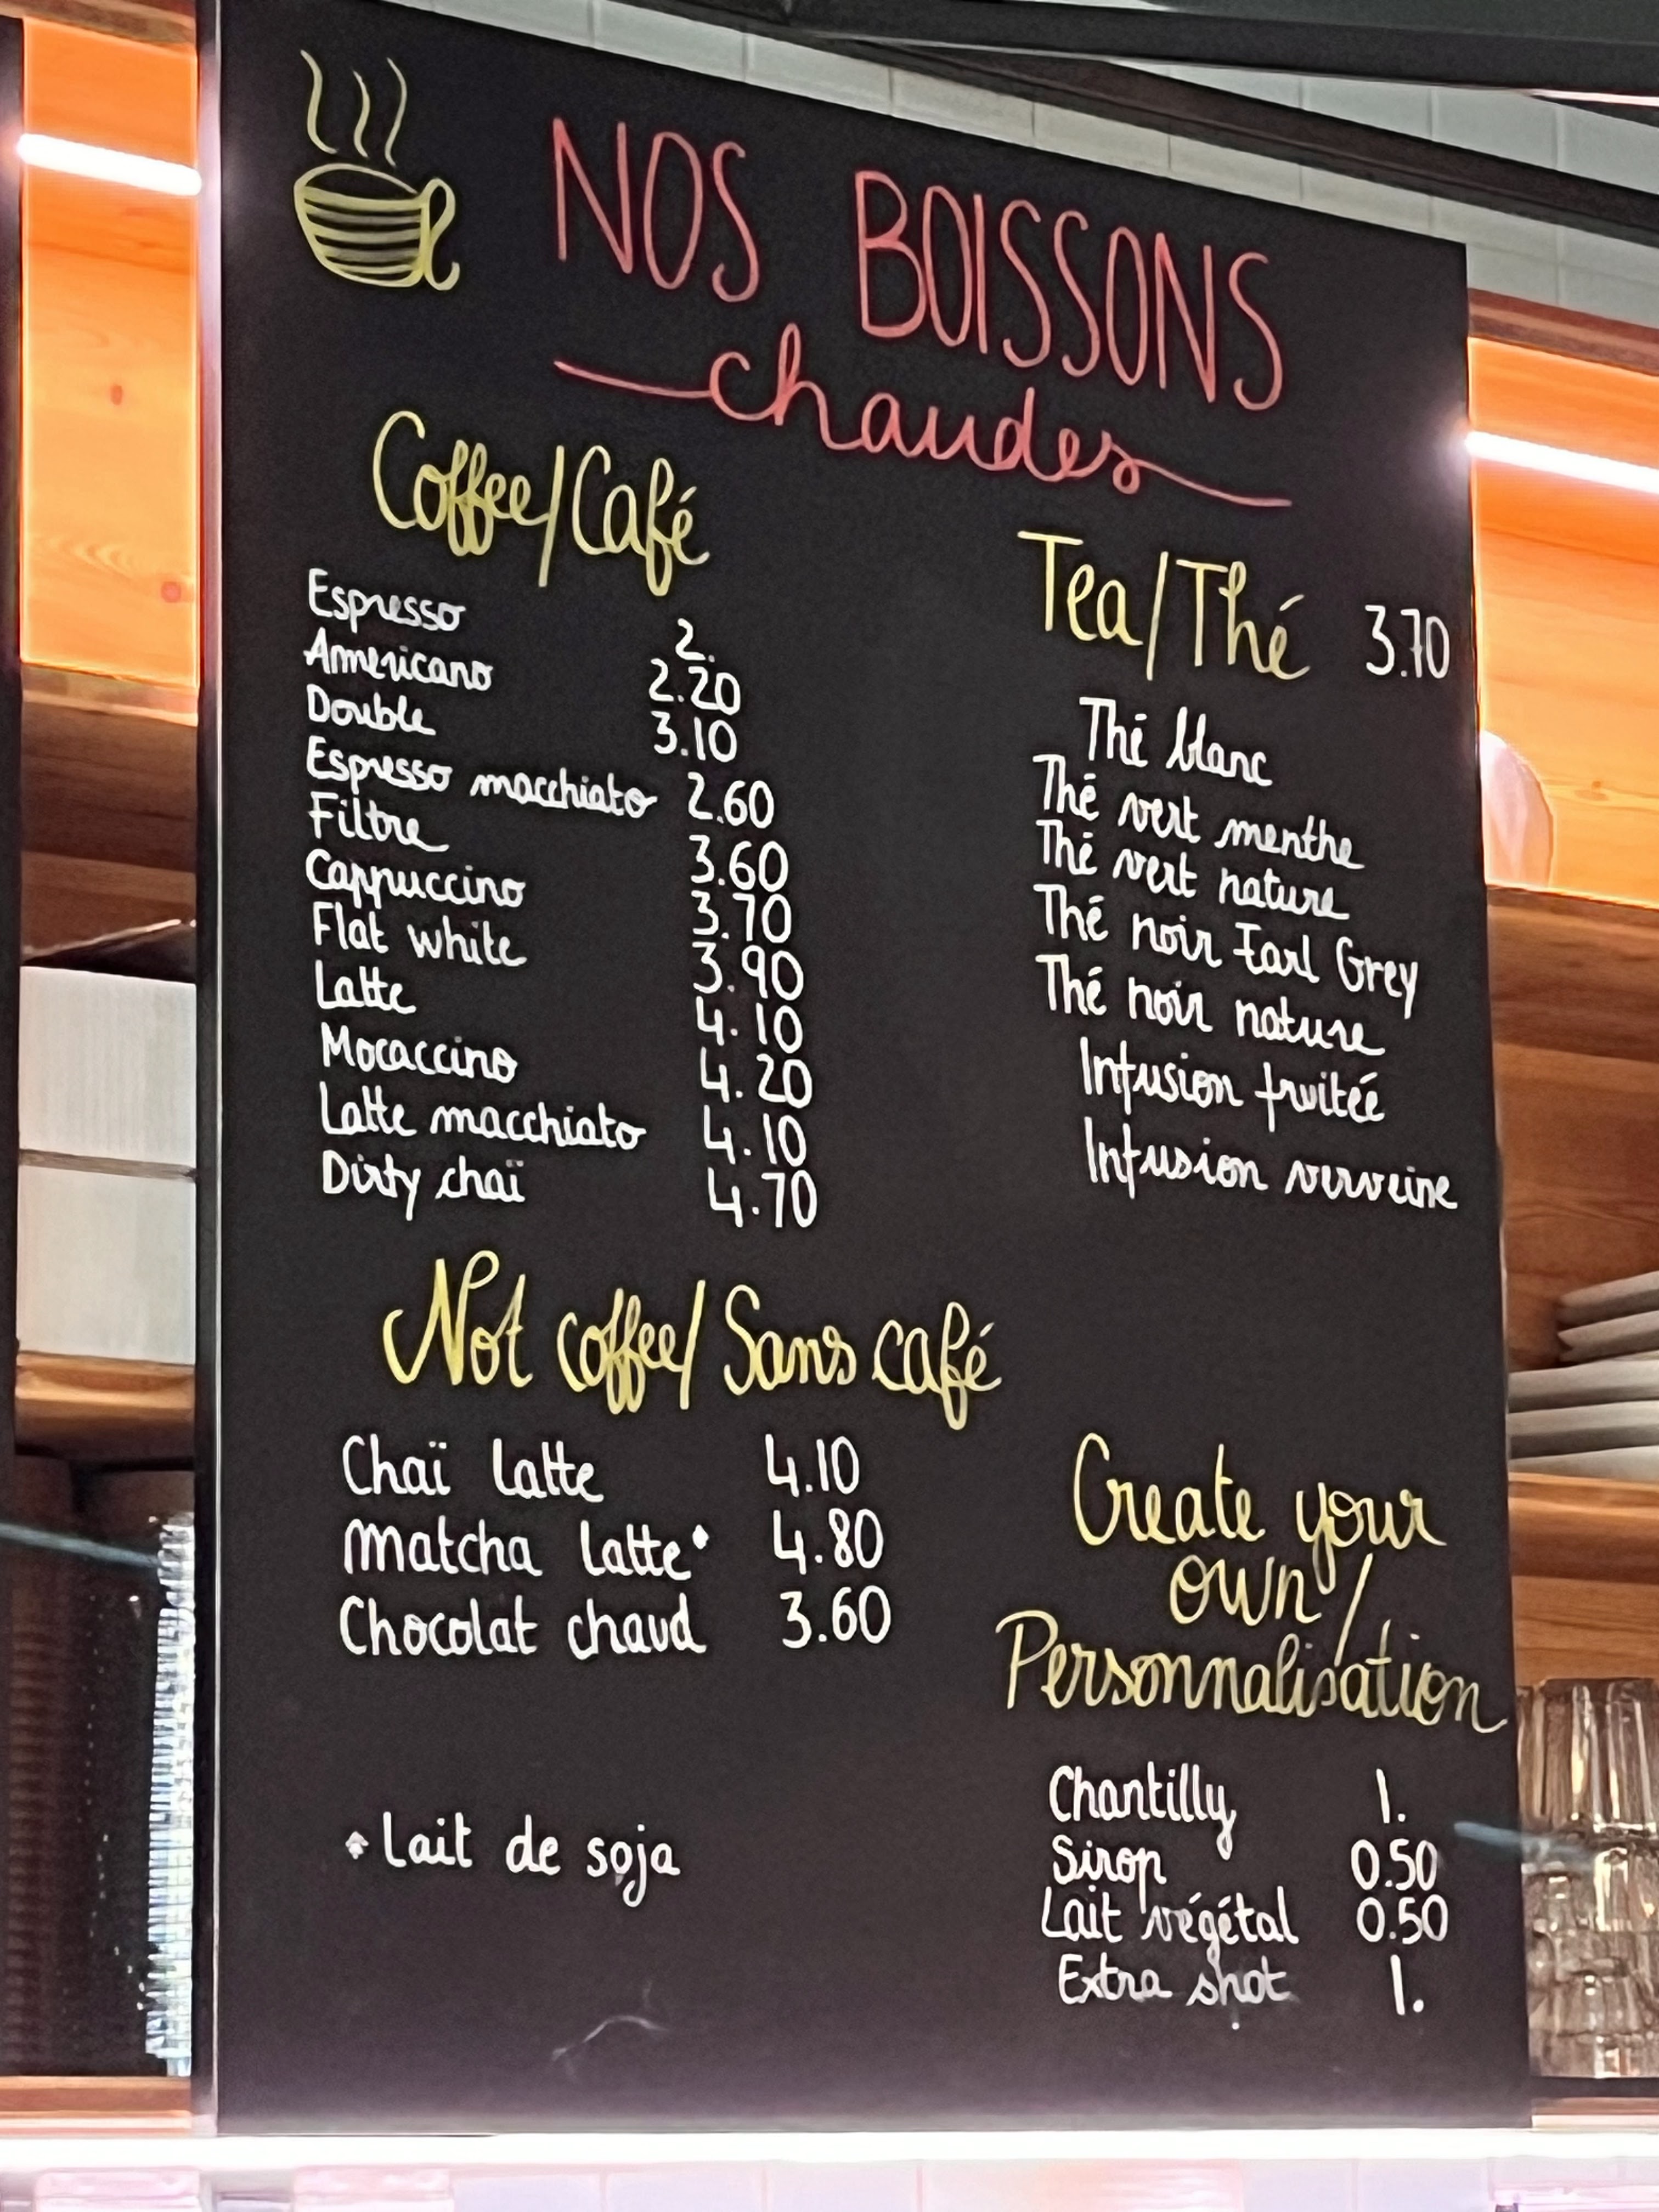 NOS BOISSONS
chaudes
Coffee/Café
Espresso 2.
Americano 2.20
Double 3.10
Espresso macchiato 2.60
Filtre 3.60
Cappuccino 3.70
Flat white 3.90
Latte 4.10
Mocaccino 4.20
Latte macchiato 4.10
Dirty chaï 4.70
Not coffee/Sans café
Chaï latte 4.10
Matcha latte* 4.80
Chocolat chaud 3.60
*Lait de soja
Tea/Thé 3.70
Thé blanc
Thé vert menthe
Thé vert nature
Thé noir Earl Grey
Thé noir nature
Infusion fruitée
Infusion verveine
Create your
own/
Personnalisation
Chantilly 1.
Sirop 0.50
Lait végétal 0.50
Extra shot 1.